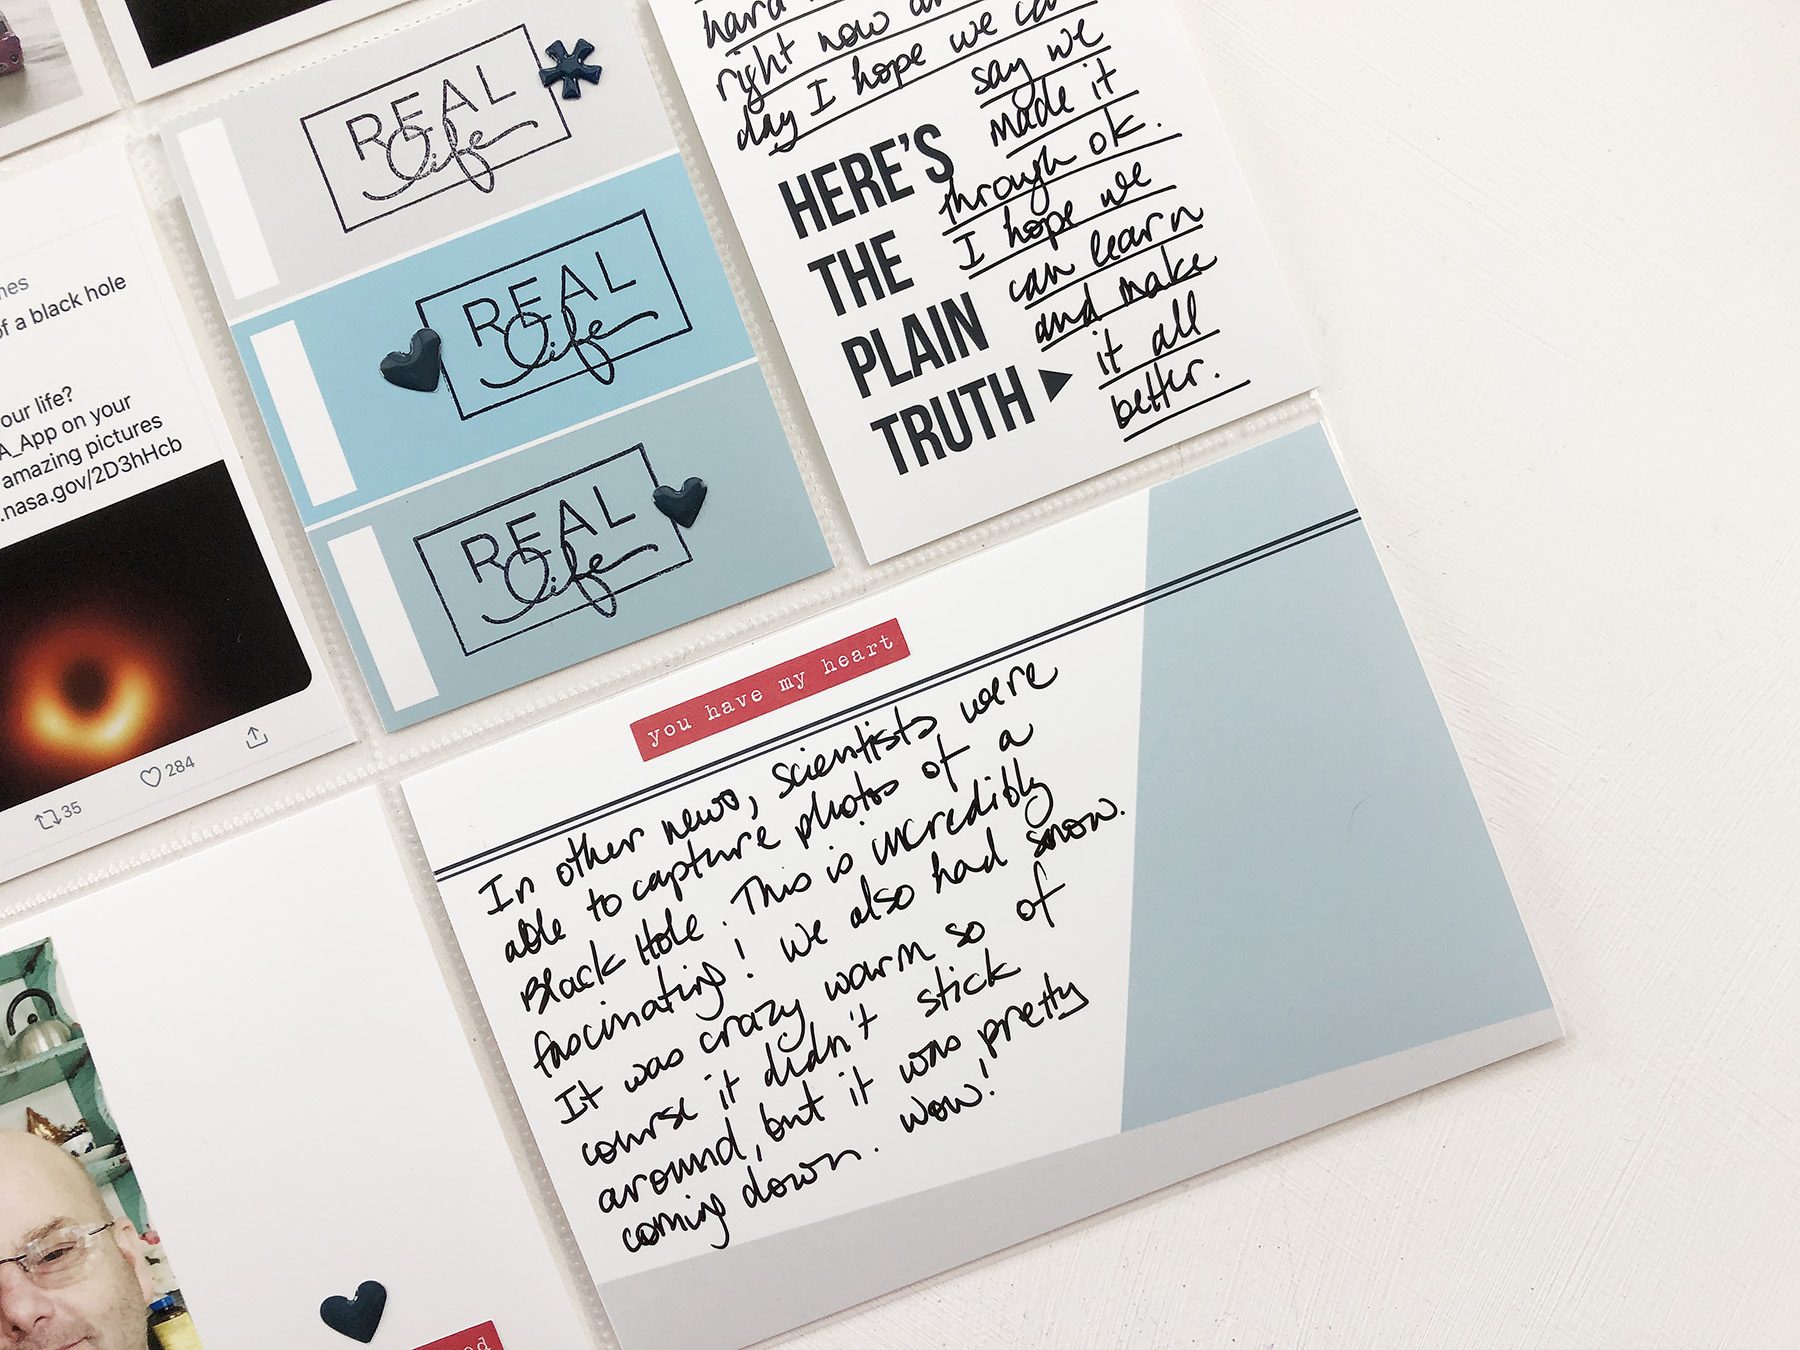 REAL
life
REAL
life
REAL
life
of a black hole
our life?
A_App on your
amazing pictures
.nasa.gov/2D3hHcb
35
284
hard
right now
day I hope we
say we
made it
through ok.
I hope we
can learn
and make
it all
better.
HERE'S
THE
PLAIN
TRUTH
you have my heart
In other news, scientists were
able to capture photos of a
Black Hole. This is incredibly
fascinating! We also had snow.
It was crazy warm so of
course it didn't stick
around, but it was pretty
coming down. wow!